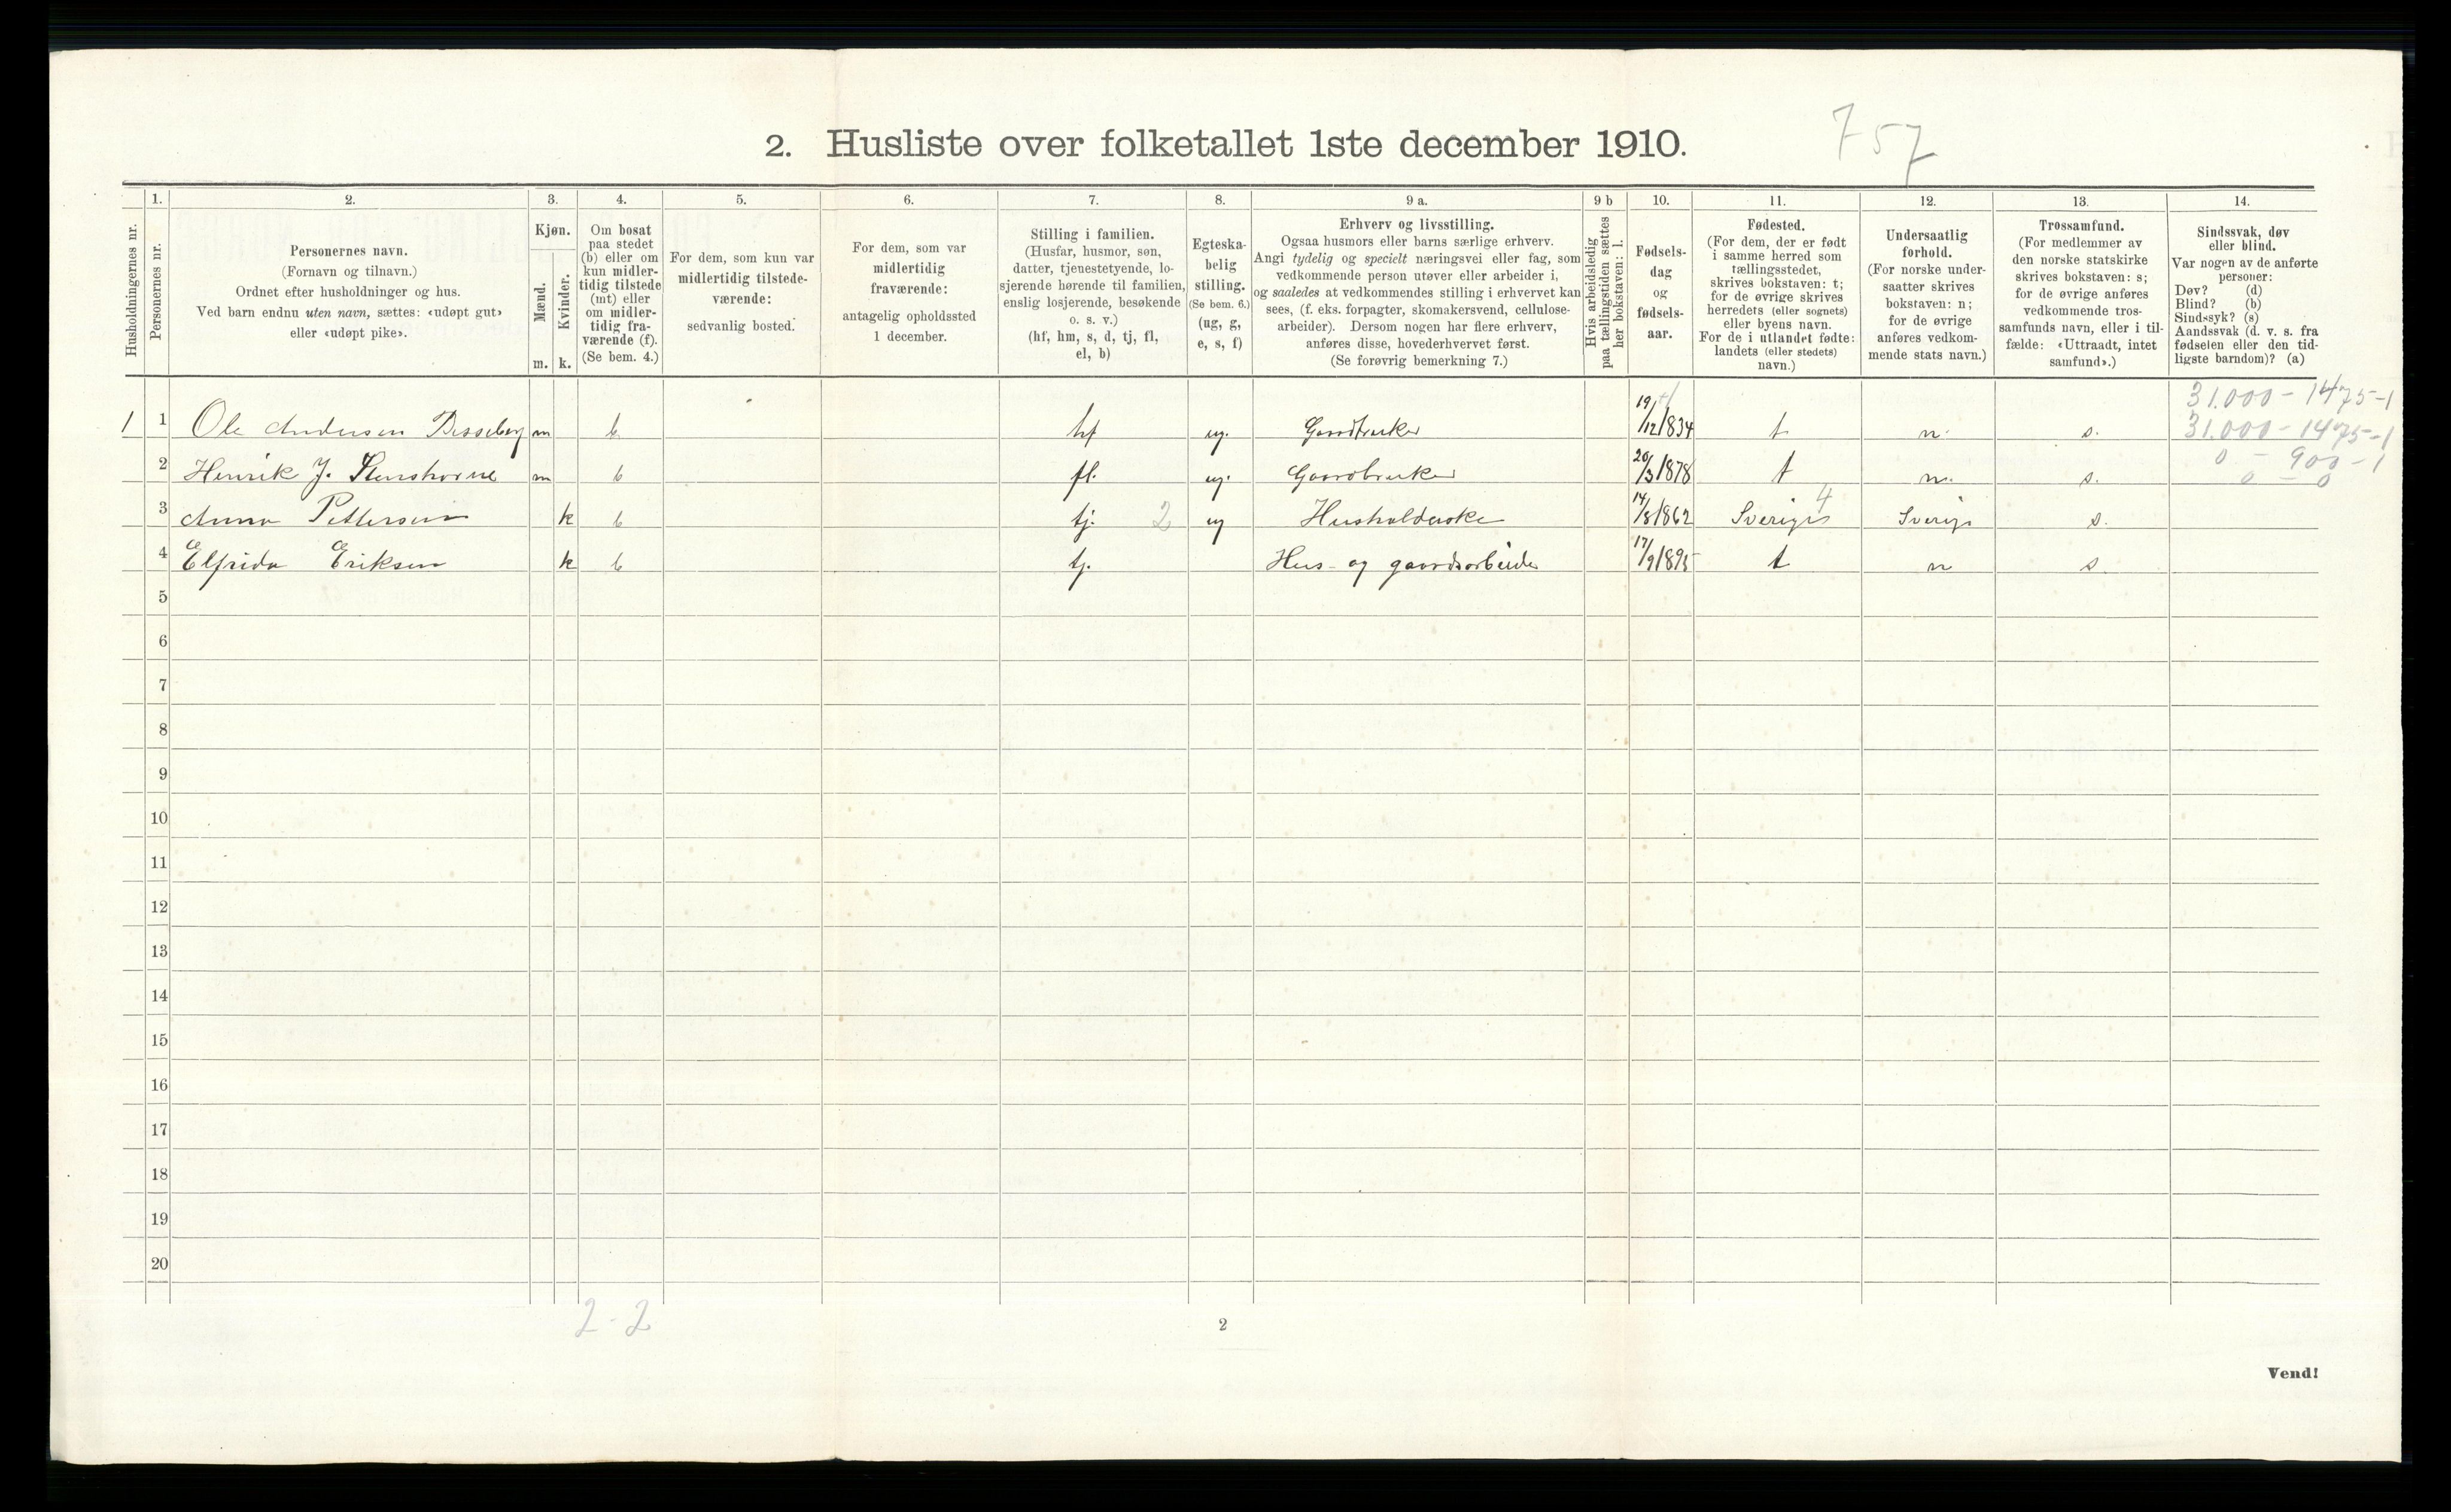 2. Husliste over folketallet 1ste december 1910.
757
Husholdningernes nr.
1.
Personernes nr.
2.
Personernes navn.
(Fornavn og tilnavn.)
Ordnet efter husholdninger og hus.
Ved barn endnu uten navn, sættes: «udøpt gut»
eller «udøpt pike».
3.
Kjøn.
Mænd.
Kvinder.
m. k.
4.
Om bosat
paa stedet
(b) eller om
kun midler-
tidig tilstede
(mt) eller
om midler-
tidig fra-
værende (f).
(Se bem. 4.)
5.
For dem, som kun var
midlertidig tilstede-
værende:
sedvanlig bosted.
6.
For dem, som var
midlertidig
fraværende:
antagelig opholdssted
1 december.
7.
Stilling i familien.
(Husfar, husmor, søn,
datter, tjenestetyende, lo-
sjerende hørende til familien,
enslig losjerende, besøkende
o. s. v.)
(hf, hm, s, d, tj, fl,
el, b)
8.
Egteska-
belig
stilling.
(Se bem. 6.)
(ug, g,
e, s, f)
9 a.
Erhverv og livsstilling.
Ogsaa husmors eller barns særlige erhverv.
Angi tydelig og specielt næringsvei eller fag, som
vedkommende person utøver eller arbeider i,
og saaledes at vedkommendes stilling i erhvervet kan
sees, (f. eks. forpagter, skomakersvend, cellulose-
arbeider). Dersom nogen har flere erhverv,
anføres disse, hovederhvervet først.
(Se forøvrig bemerkning 7.)
9 b
Hvis arbeidsledig
paa tællingstiden sættes
her bokstaven: l.
10.
Fødsels-
dag
og
fødsels-
aar.
11.
Fødested.
(For dem, der er født
i samme herred som
tællingsstedet,
skrives bokstaven: t;
for de øvrige skrives
herredets (eller sognets)
eller byens navn.
For de i utlandet fødte:
landets (eller stedets)
navn.)
12.
Undersaatlig
forhold.
(For norske under-
saatter skrives
bokstaven: n;
for de øvrige
anføres vedkom-
mende stats navn.)
13.
Trossamfund.
(For medlemmer av
den norske statskirke
skrives bokstaven: s;
for de øvrige anføres
vedkommende tros-
samfunds navn, eller i til-
fælde: «Uttraadt, intet
samfund».)
14.
Sindssvak, døv
eller blind.
Var nogen av de anførte
personer:
Døv? (d)
Blind? (b)
Sindssyk? (s)
Aandssvak (d. v. s. fra
fødselen eller den tid-
ligste barndom)? (a)
31.000 - 1475 - 1
1 1 Ole Andersen m b hf ug. Gaardbruker 19/12 1834 t n. s. 31.000 - 1475 - 1
0 - 900 - 1
2 Henrik J. m b fl. ug. Gaardbruker 20/3 1878 t n. s. 0 - 0
3 Anna Pettersen k b tj. 2 ug Husholderske 14/8 1862 Sverige 4 Sverige s.
4 Elfrida Eriksen k b tj. Hus- og gaardsarbeide 17/9 1895 t n s
5
6
7
8
9
10
11
12
13
14
15
16
17
18
19
20
2 - 2
2
Vend!